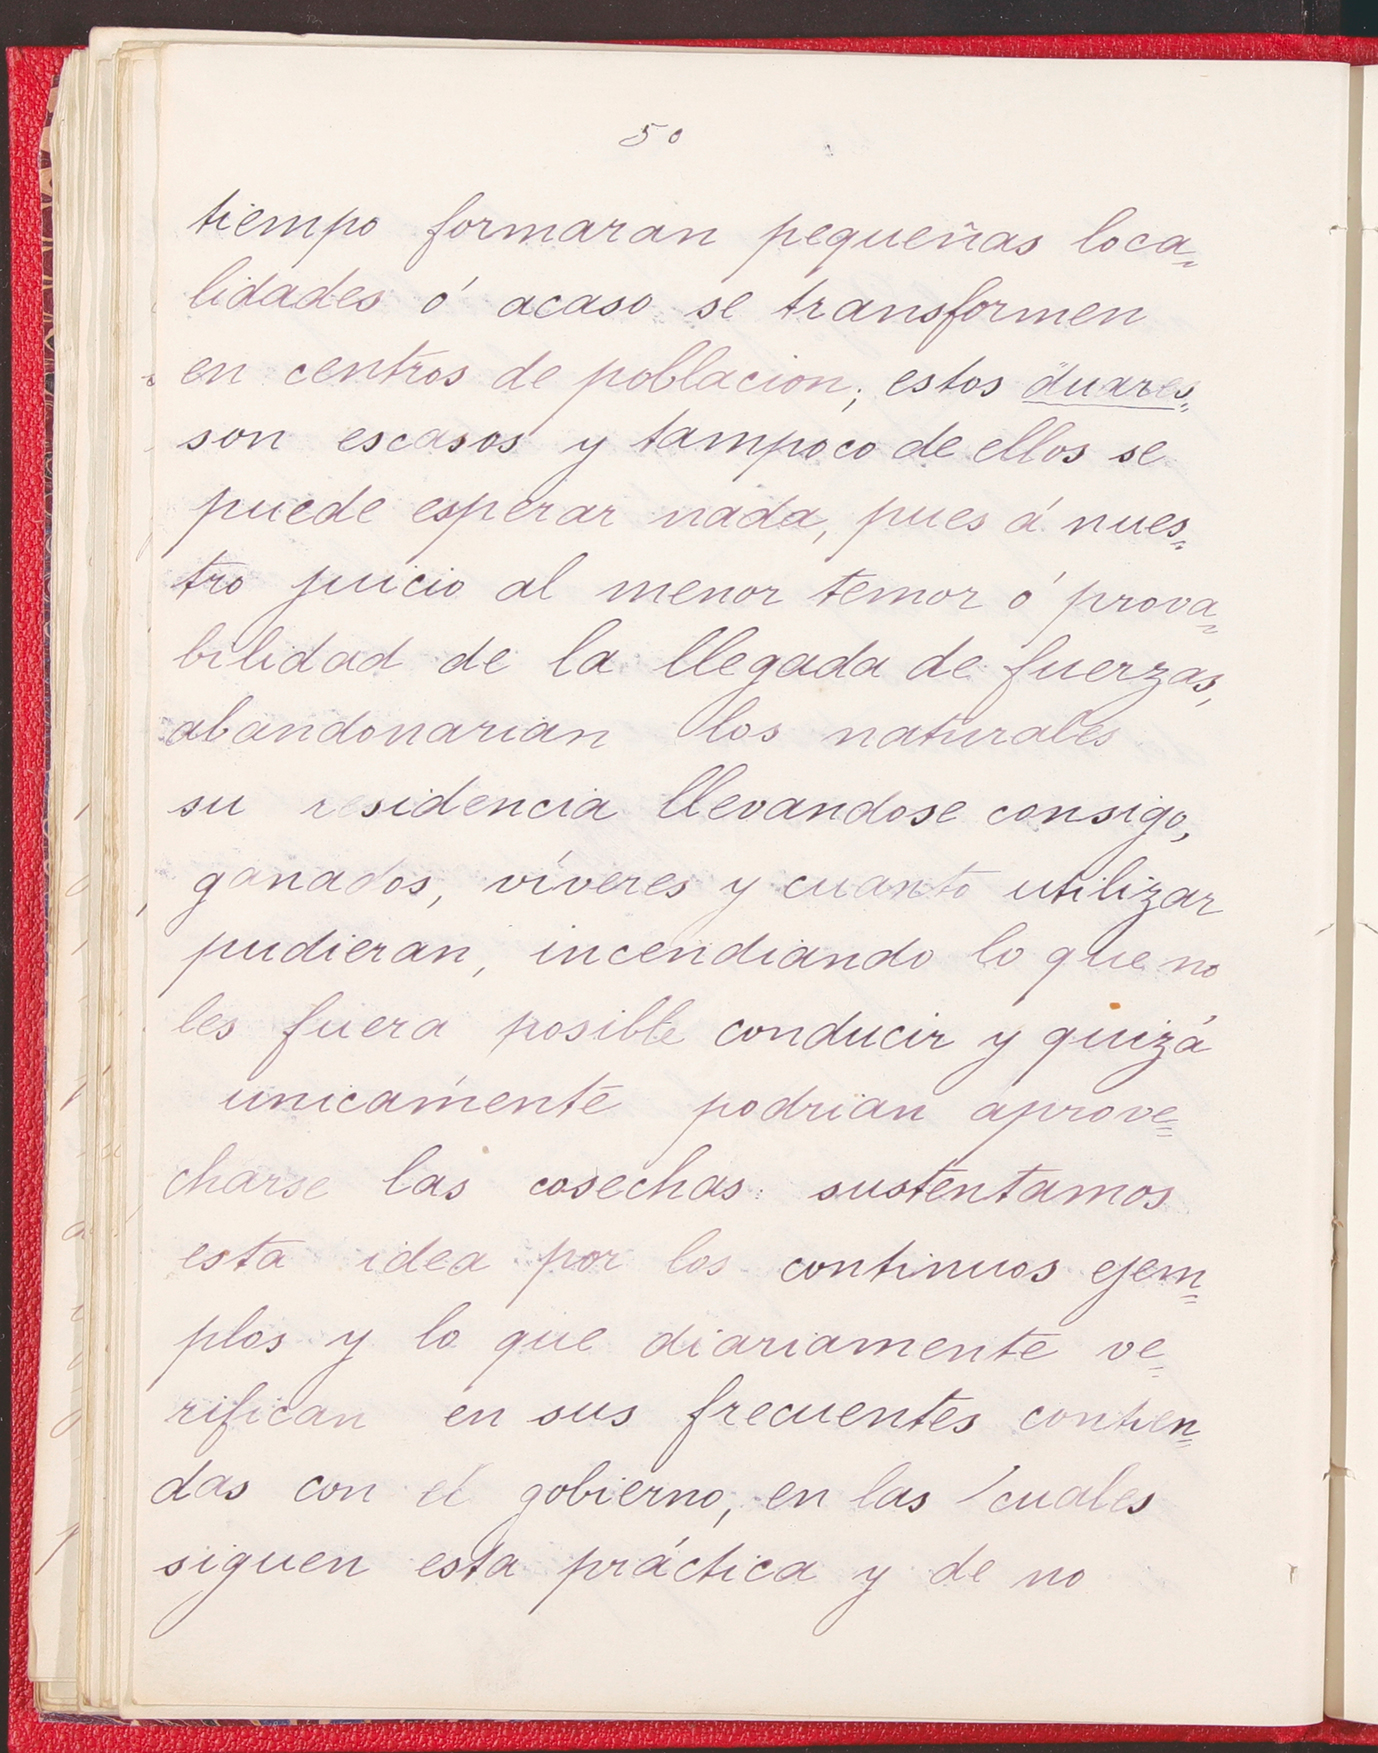 50
tiempo formaran pequeñas loca=
lidades ó acaso se transformen
en centros de poblacion; estos "duares"
son escasos y tampoco de ellos se
puede esperar nada, pues á nues=
tro juicio al menor temor ó prova=
bilidad de la llegada de fuerzas,
abandonarian los naturales
su residencia llevandose consigo,
ganados, víveres y cuanto utilizar
pudieran, incendiando lo que no
les fuera posible conducir y quizá
unicamente podrian aprove=
charse las cosechas: sustentamos
esta idea por los continuos ejem=
plos y lo que diariamente ve=
rifican en sus frecuentes contien=
das con el gobierno, en las cuales
siguen esta práctica y de no